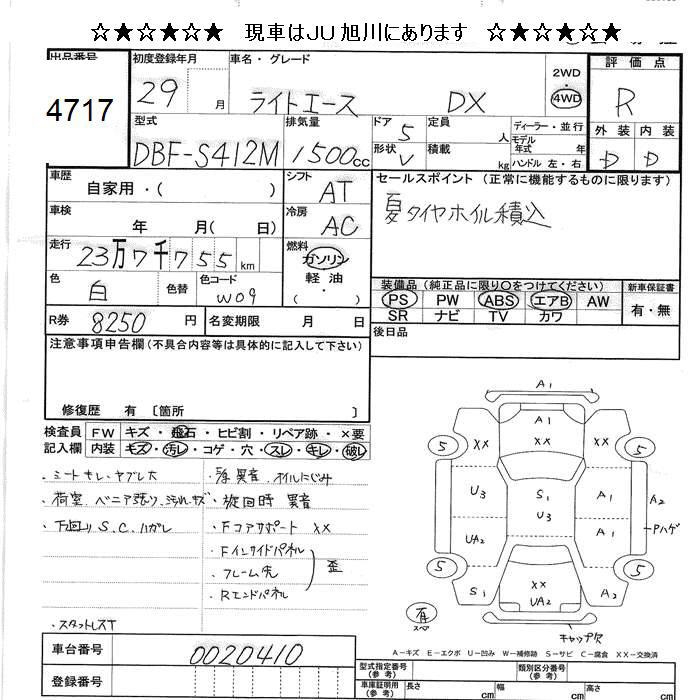 ☆★☆★☆★ 現車はJU旭川にあります ☆★☆★☆★
出品番号 4717
初度登録年月 29 月
車名・グレード ライトエース DX
2WD 4WD
評価点 R
外装 D 内装 D
型式 DBF-S412M
排気量 1500cc
ドア 5
形状 V
定員 人
積載 kg
ディーラー・並行
モデル年式 年
ハンドル 左・右
車歴 自家用・( )
シフト AT
車検 年 月( 日)
冷房 AC
走行 23万7千755 km
燃料 ガソリン 軽油 ( ・ )
色 白 色替 色コード W09
R券 8250円 名変期限 月 日
セールスポイント (正常に機能するものに限ります)
夏タイヤホイル積込
装備品(純正品に限り○をつけてください) 新車保証書
PS PW ABS エアB AW 有・無
SR ナビ TV カワ
後日品
注意事項申告欄(不具合内容等は具体的に記入して下さい)
修復歴 有 〔箇所 〕
検査員 FW キズ・飛石・ヒビ割・リペア跡・×要
記入欄 内装 キズ・汚レ・コゲ・穴・スレ・キレ・破レ
・シートキレ・ヤブレ大
・荷室、ベニア張り、汚れ・キズ
・下回り S.C.ハガレ
・スタットレスT
異音 オイルにじみ
・旋回時 異音
・Fコアサポート XX
・Fインサイドパネル
・フレーム先 歪
・Rエンドパネル
A1
A1
XX XX XX
5 5
U3 S1 A1
U3 A2
UA2 A1 Pハゲ
5 5
S1 XX A2
UA2
有
スペ
キャップ欠
A-キズ E-エクボ U-凹み W-補修跡 S-サビ C-腐食 XX-交換済
車台番号 0020410
登録番号
型式指定番号(参考) 類別区分番号(参考)
車庫証明用(参考) 長さ cm 幅 cm 高さ cm